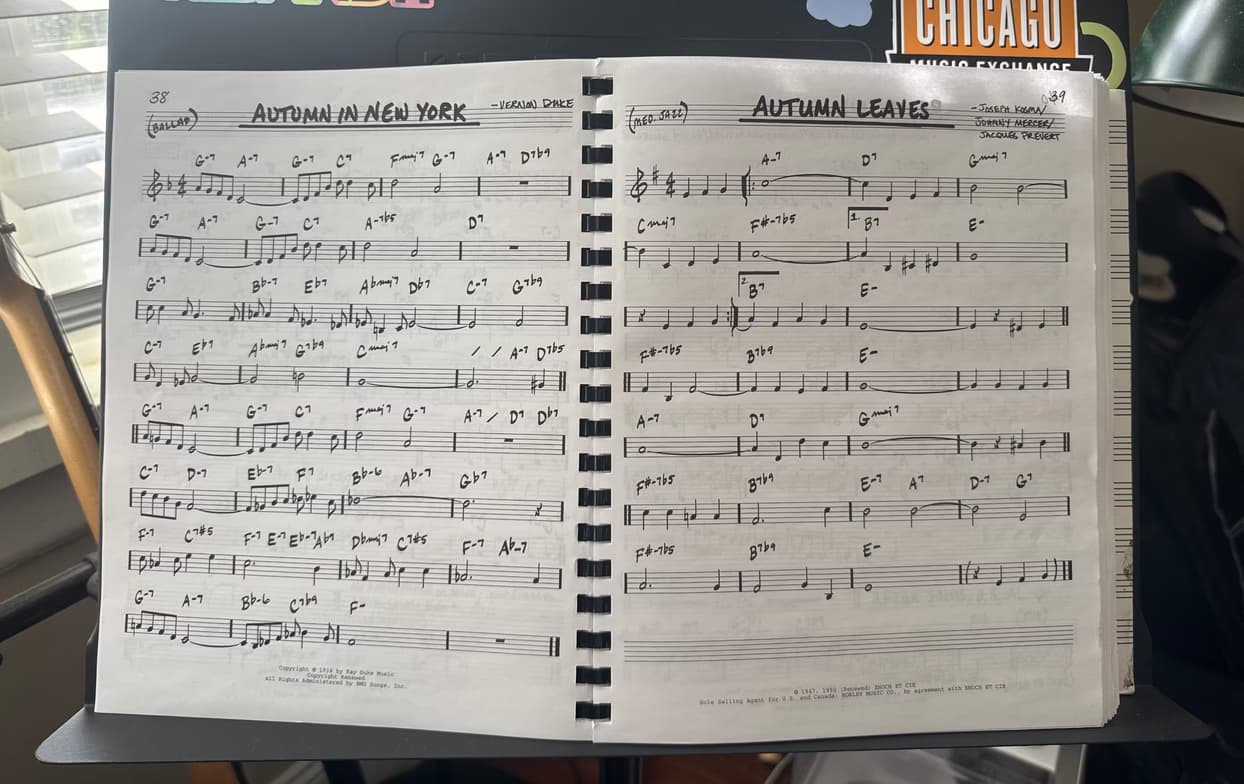 CHICAGO
MUSIC EXCHANGE
38
AUTUMN IN NEW YORK
-VERNON DUKE
(BALLAD)
G-7 A-7 G-7 C7 Fmaj7 G-7 A-7 D7b9
G-7 A-7 G-7 C7 A-7b5 D7
G-7 Bb-7 Eb7 Abmaj7 Db7 C-7 G7b9
C-7 Eb7 Abmaj7 G7b9 Cmaj7 / / A-7 D7b5
G-7 A-7 G-7 C7 Fmaj7 G-7 A-7 / D7 Db7
C-7 D-7 Eb-7 F7 Bb-6 Ab-7 Gb7
F-7 C7#5 F-7 E-7 Eb-7 Ab7 Dbmaj7 C7#5 F-7 Ab-7
G-7 A-7 Bb-6 C7b9 F-
Copyright © 1934 by Kay Duke Music
Copyright Renewed
All Rights Administered by BMG Songs, Inc.
39
AUTUMN LEAVES
-JOSEPH KOSMA/
JOHNNY MERCER/
JACQUES PREVERT
(MED. JAZZ)
A-7 D7 Gmaj7
Cmaj7 F#-7b5 1. B7 E-
2. B7 E-
F#-7b5 B7b9 E-
A-7 D7 Gmaj7
F#-7b5 B7b9 E-7 A7 D-7 G7
F#-7b5 B7b9 E-
© 1947, 1950 (Renewed) ENOCH ET CIE
Sole Selling Agent for U.S. and Canada: MORLEY MUSIC CO., by agreement with ENOCH ET CIE